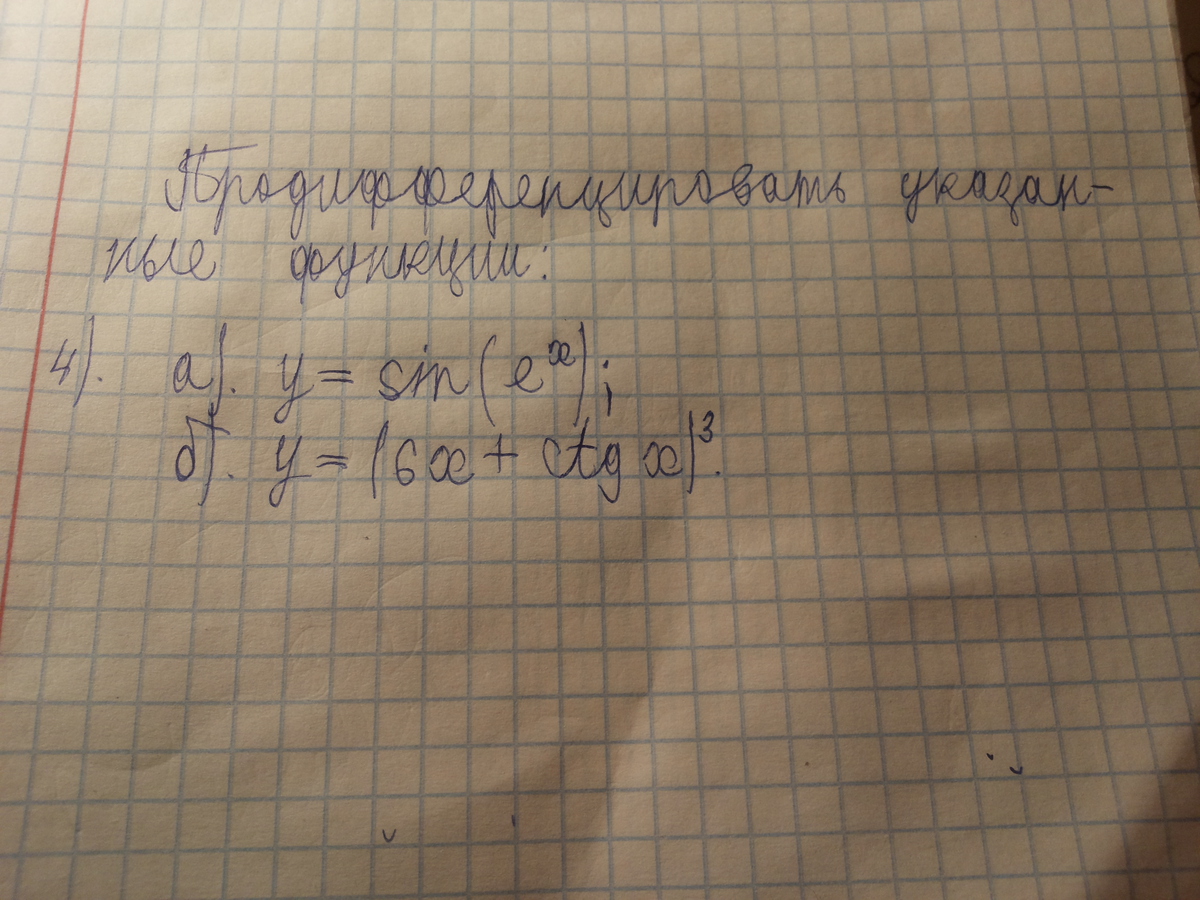 Продифференцировать указан-
ные функции:
4). а). y = sin(eˣ);
б). y = (6x + ctg x)³.